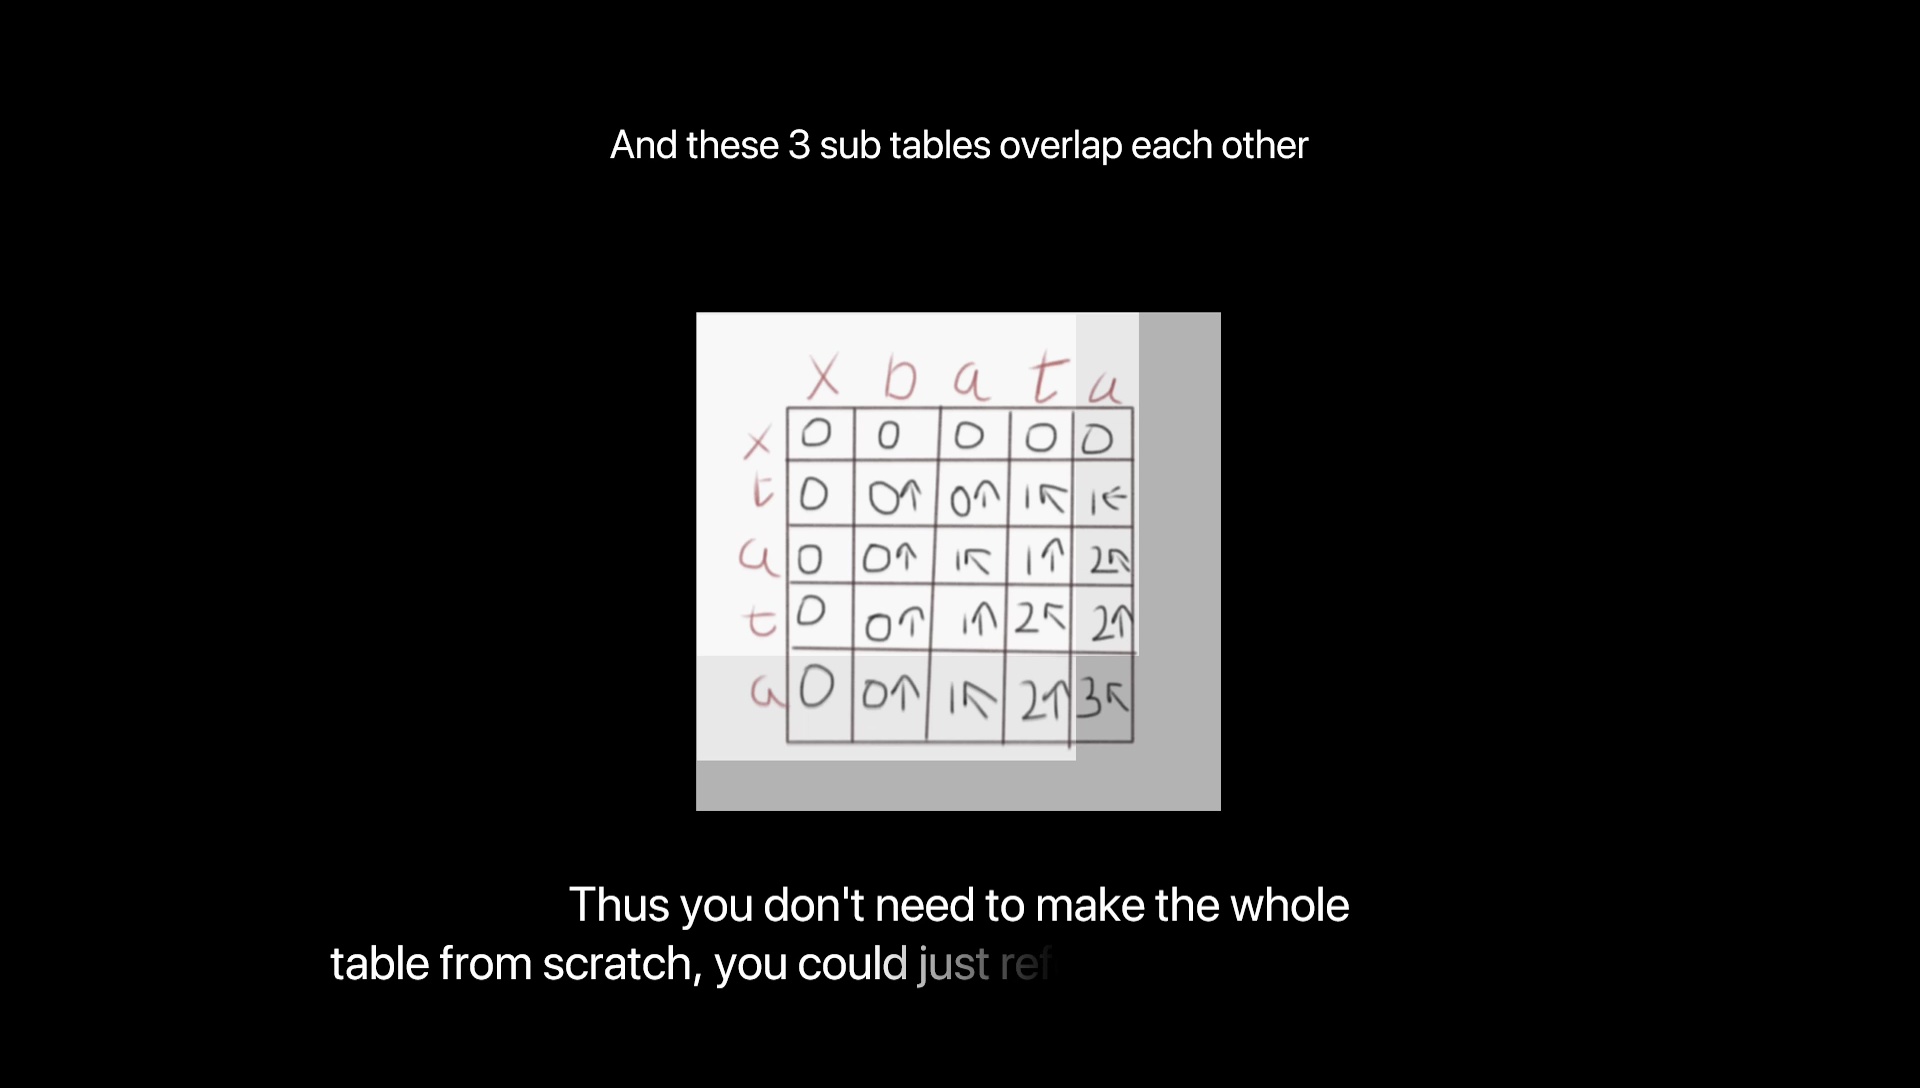 And these 3 sub tables overlap each other
x b a t a
x 0 0 0 0 0
t 0 0↑ 0↑ 1↖ 1←
a 0 0↑ 1↖ 1↑ 2↖
t 0 0↑ 1↑ 2↖ 2↑
a 0 0↑ 1↖ 2↑ 3↖
Thus you don't need to make the whole
table from scratch, you could just ref